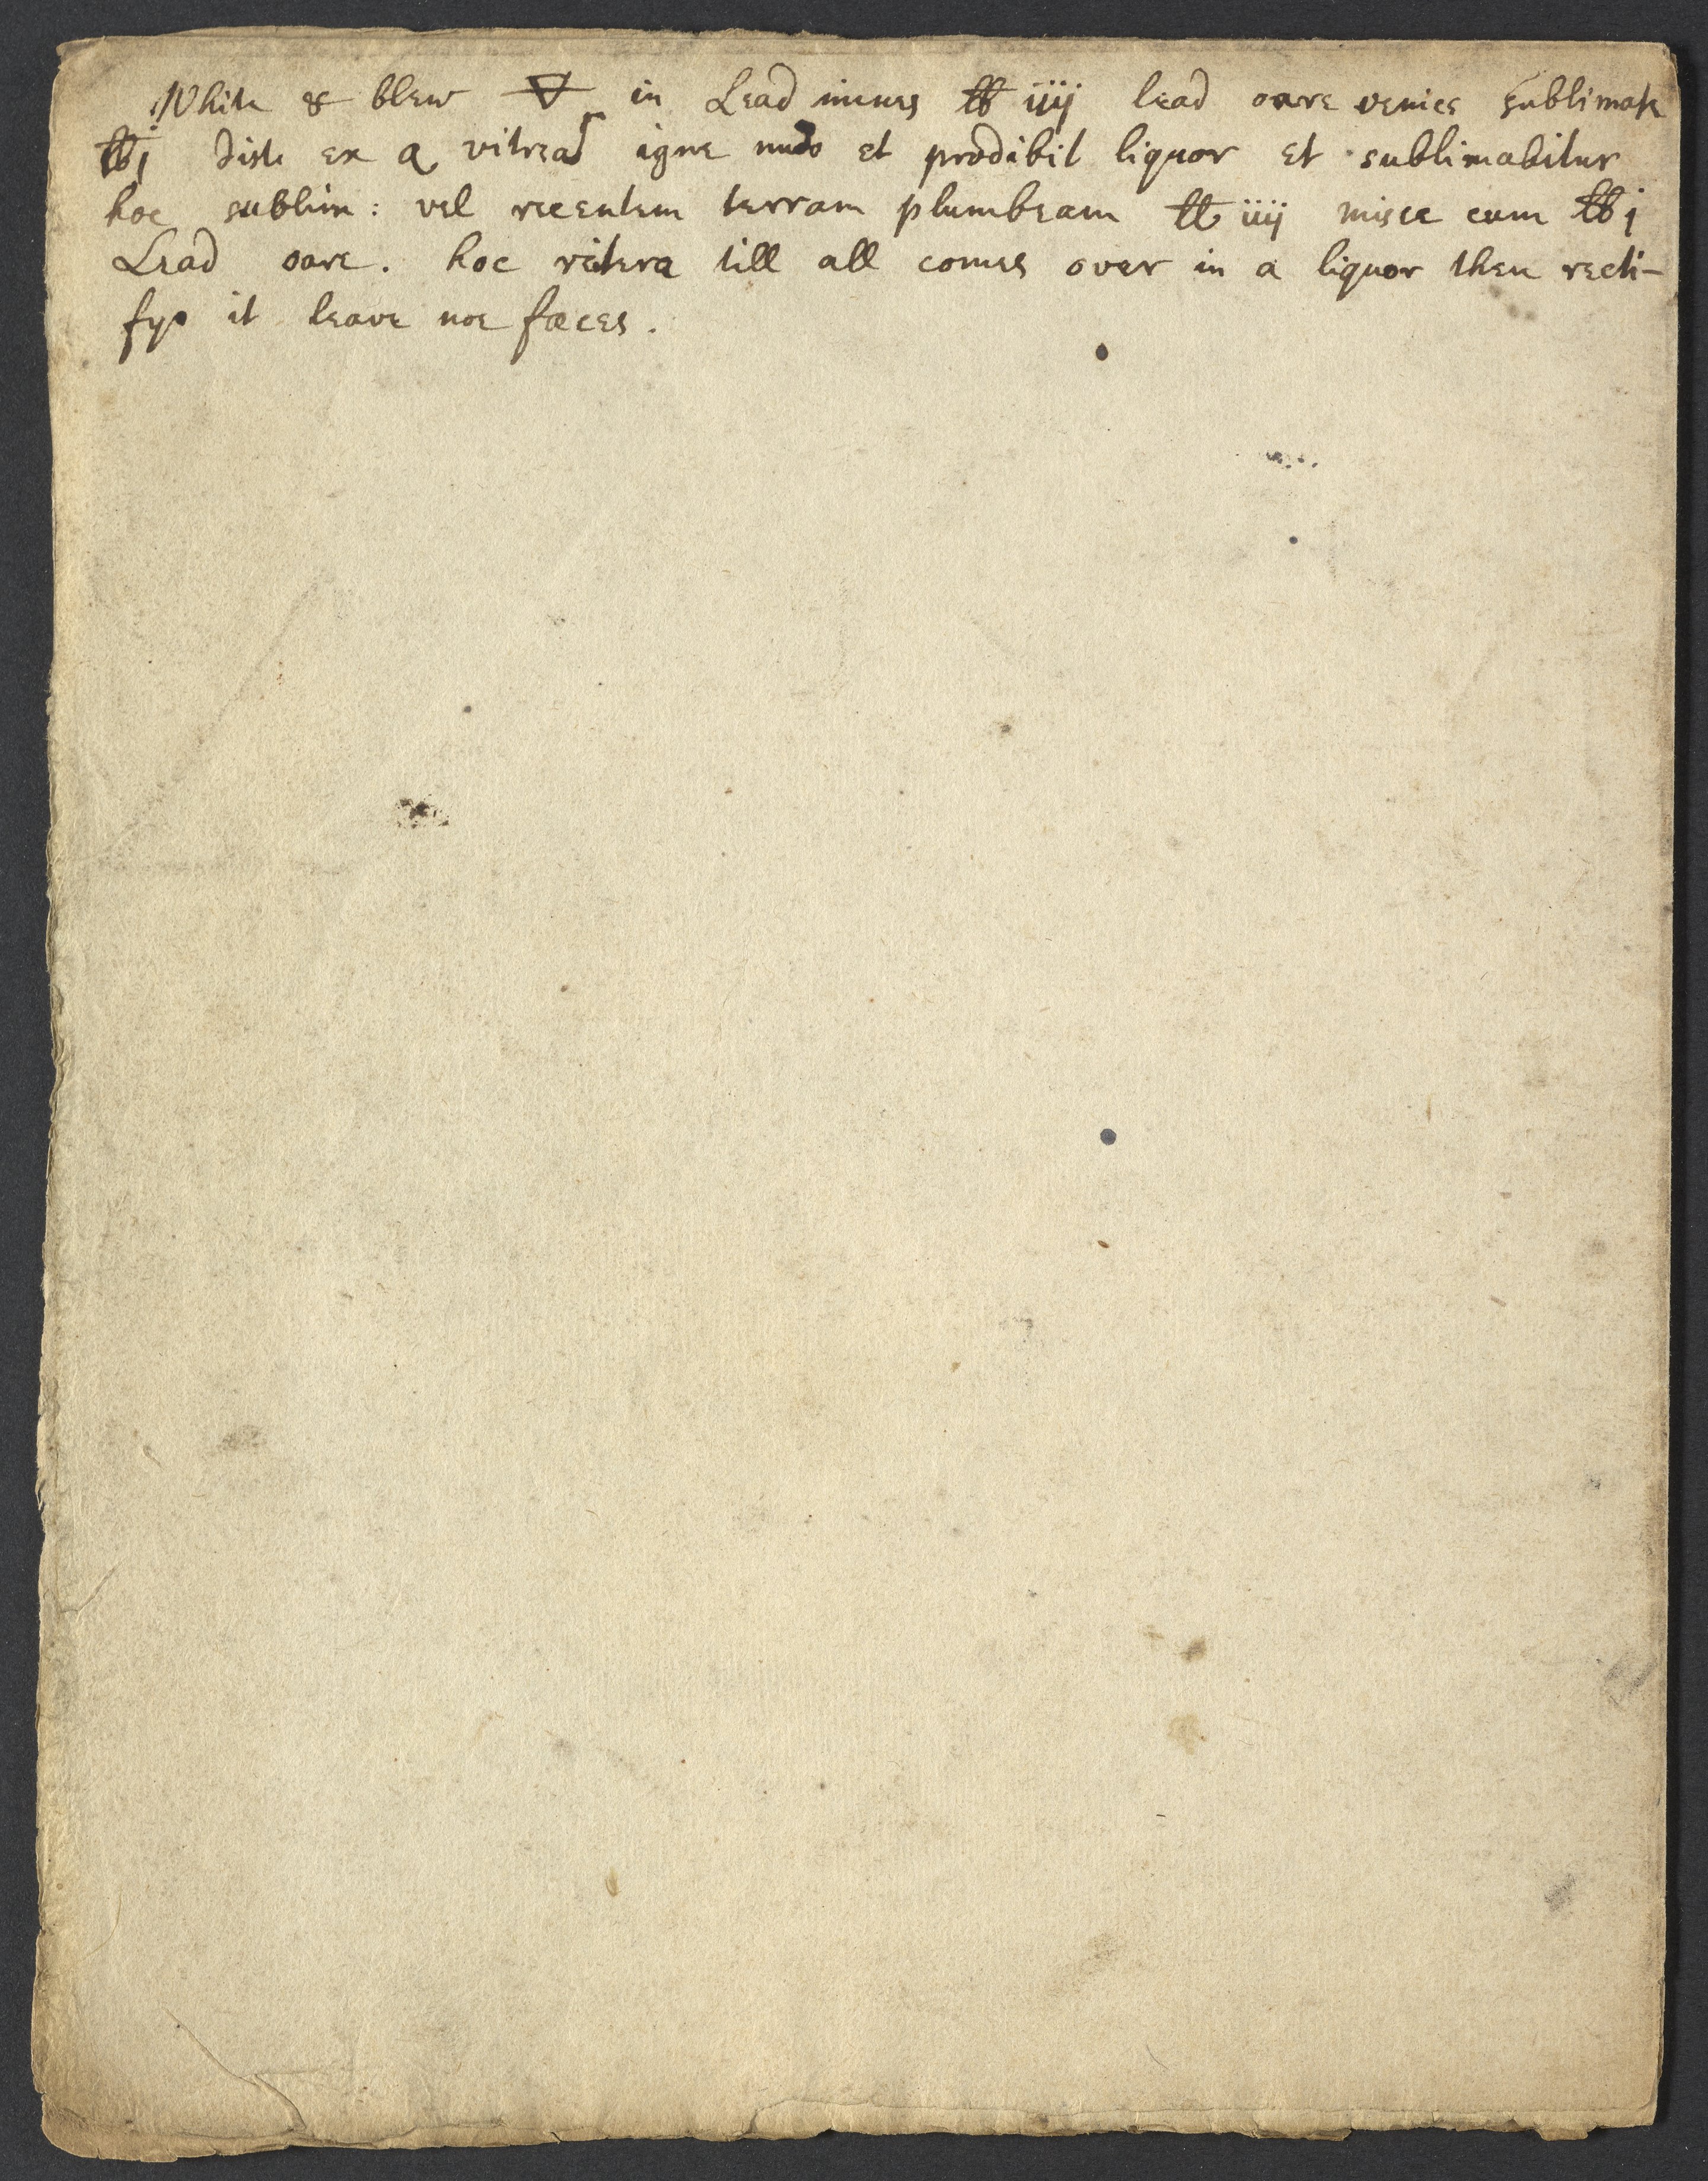 White & blew 🜃 in Lead mines ℔ iiij lead oare venice sublimate
℔j distt ex a vitreat igne nudo et prodibit liquor et sublimabitur
hoc sublim: vel recentem terram plumbeam ℔ iiij misce cum ℔j
Lead oare. hoc reitera till all comes over in a liquor then recti-
fye it leave noe fæces.